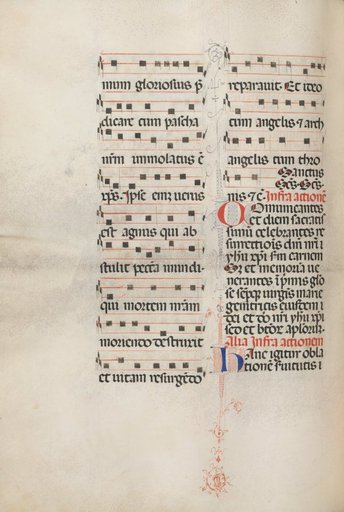 mum gloriosius p̄
dicare cum pascha
nr̄m immolatus ē
xp̄s. Ipse eni͛ uerus
est agnus qui ab
stulit pecca mundi
qui mortem nr̄am
moriendo destruxit
et uitam resurgēdo
reparauit. Et ideo
cum angelis & arch
angelis cum thro
Sanctus
Scs. Scs.
nis & c̄. Infra actionē
Comunicantes
et diem sacratis
simū celebrantes re
surrectiōis dn̄i nr̄i
yhu xp̄i s̄m carnem
Sr et memoriā ue
nerantes īp̄mis glo
se semper uirgīs marie
genitricis eiusdem
dei et dn̄i nr̄i yhu xp̄i
sed et btōr aplor̄
Alia Infra actionem
Hanc igitur obla
tionē ẜuitutis